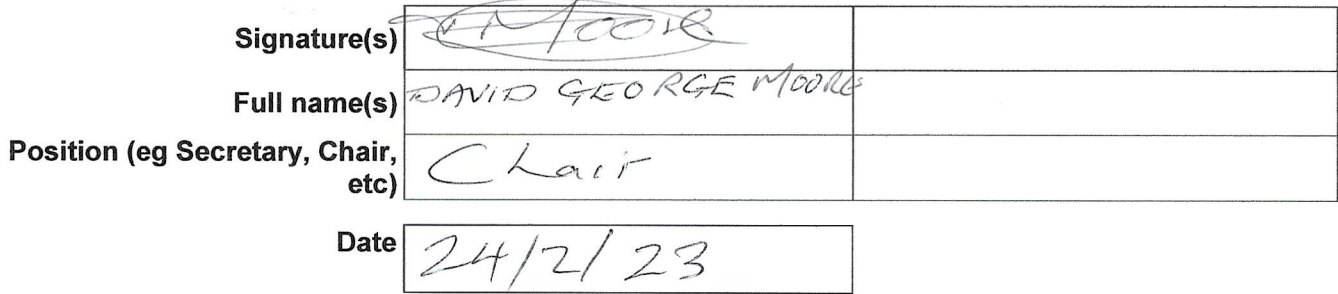 Signature(s) Moore
Full name(s) DAVID GEORGE MOORE
Position (eg Secretary, Chair,
etc) Chair
Date 24/2/23